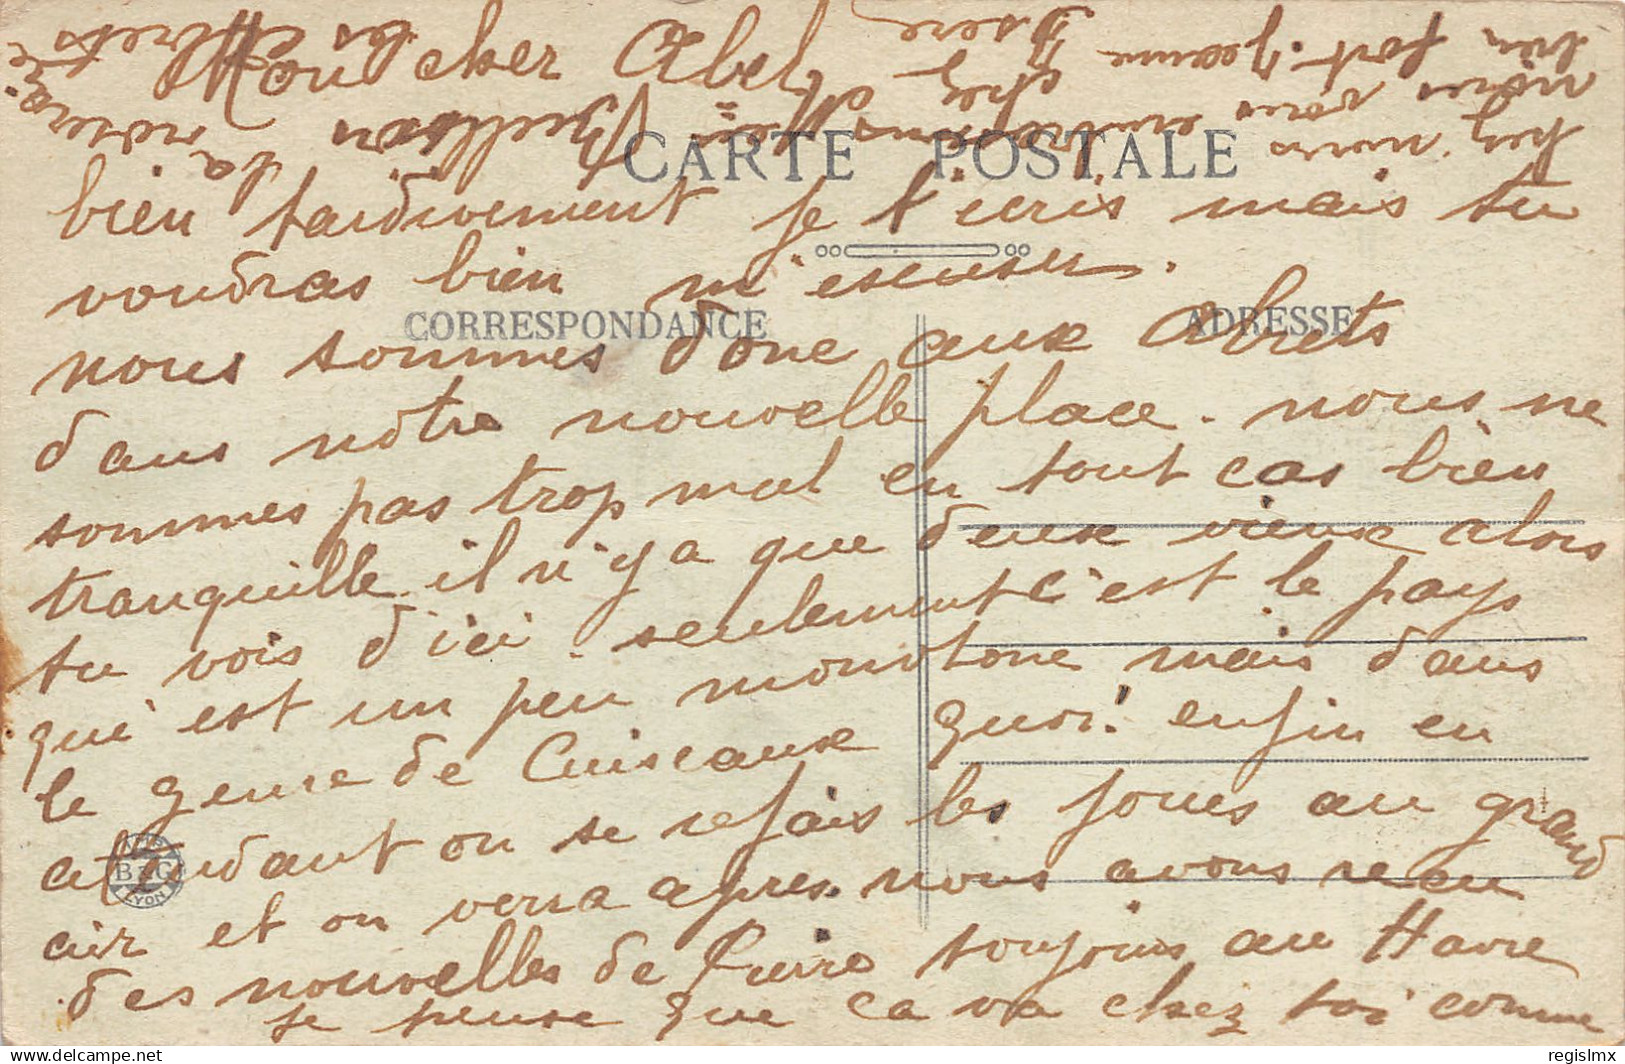 Mon cher Abel
CARTE POSTALE
bien tardivement je t'ecris mais tu
voudras bien m'escuser.
CORRESPONDANCE
ADRESSE
nous sommes donc aux Abrets
dans notre nouvelle place. nous ne
sommes pas trop mal en tout cas bien
tranquille il n'y a que deux vieux alors
tu vois d'ici. seulement c'est le pays
qui est un peu monotone mais dans
le genre de Cuiseaux quoi! enfin en
atendant on se refais les joues au grand
air et on verra apres. nous avons recu
des nouvelles de Pierre toujours au Havre
je pense que ca va chez toi comme
ici nous vous embrassons
bien fort. Jeanne
chez Mr
Isère
les Abrets
B&G
LYON
delcampe.net
regislmx